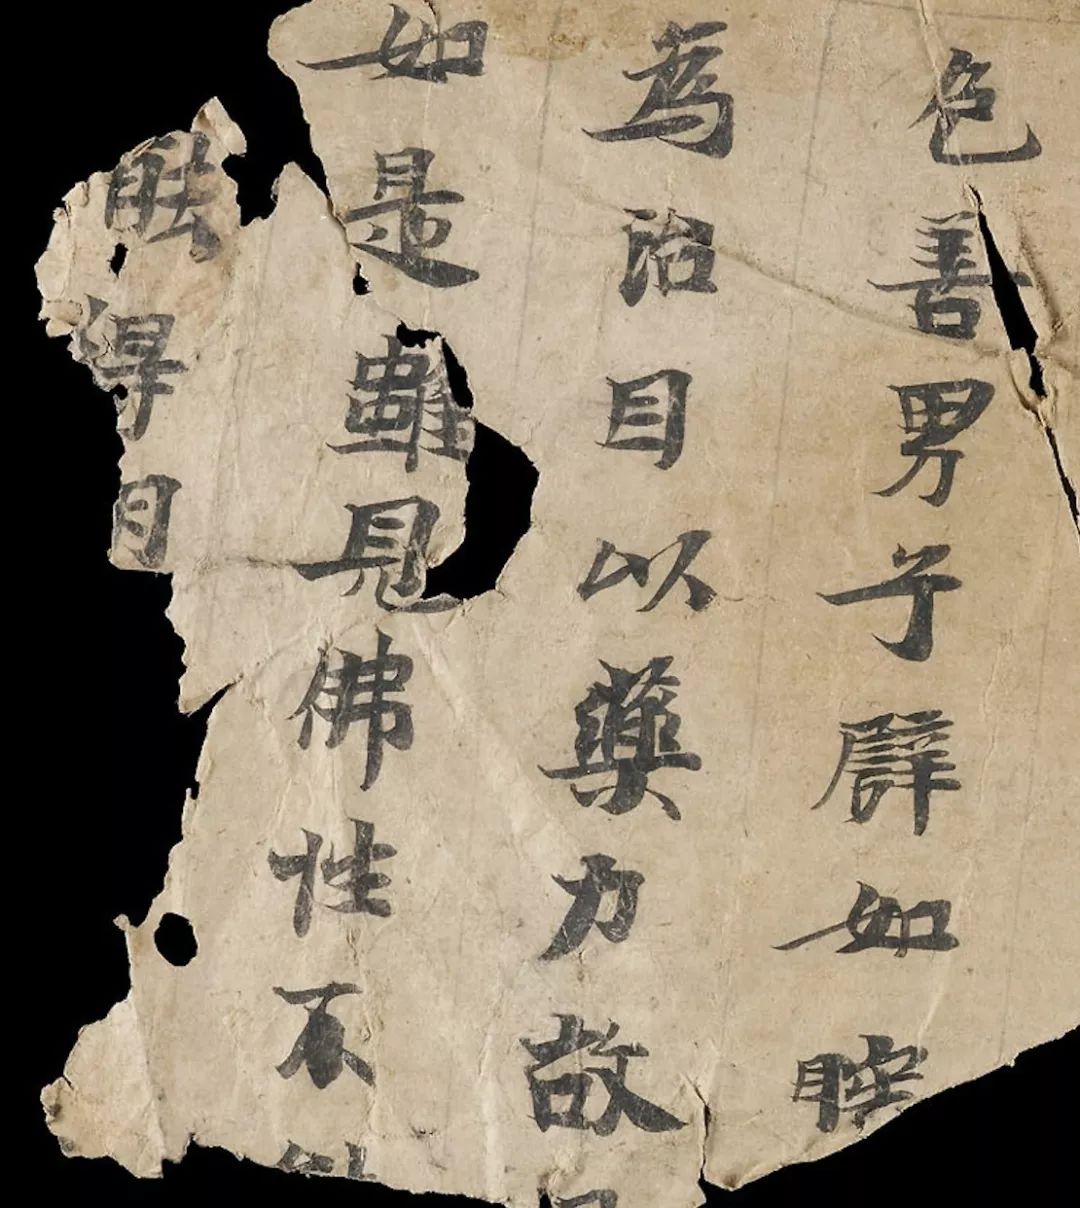 色善男子譬如
為治目以藥力故
如是雖見佛性不
能得